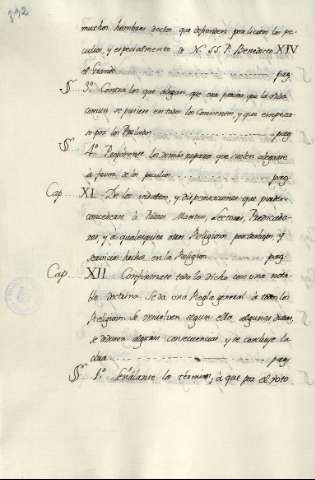 392
muchos hombres doctos que defienden por licitos los pe-
culios, y especialmente à N. SS. P. Benedicto XIV
el Grande pag.
§ 3º Contra los que alegan, que era preciso, que la vida
comun se pusiese en todos los Conventos, y que empieze
por los Prelados pag.
§ 4º Propónense los demás reparos que suelen alegarse
à favor de los peculios pag.
Cap. XI. De los indultos, y dispensaciones que pueden
concederse à Padres Maestros, Lectores, Predicado-
res, y à qualesquiera otros Religiosos por trabajos, y
servicios hechos en la Religion pag.
Cap. XII Confirmase todo lo dicho con una nota-
ble doctrina. Se da una Regla general à todos los
Religiosos. Se resuelven algunas dudas,
se deducen algunas consecuencias y se concluye la
obra pag.
§ 1º Señalanse los términos, à que por el voto